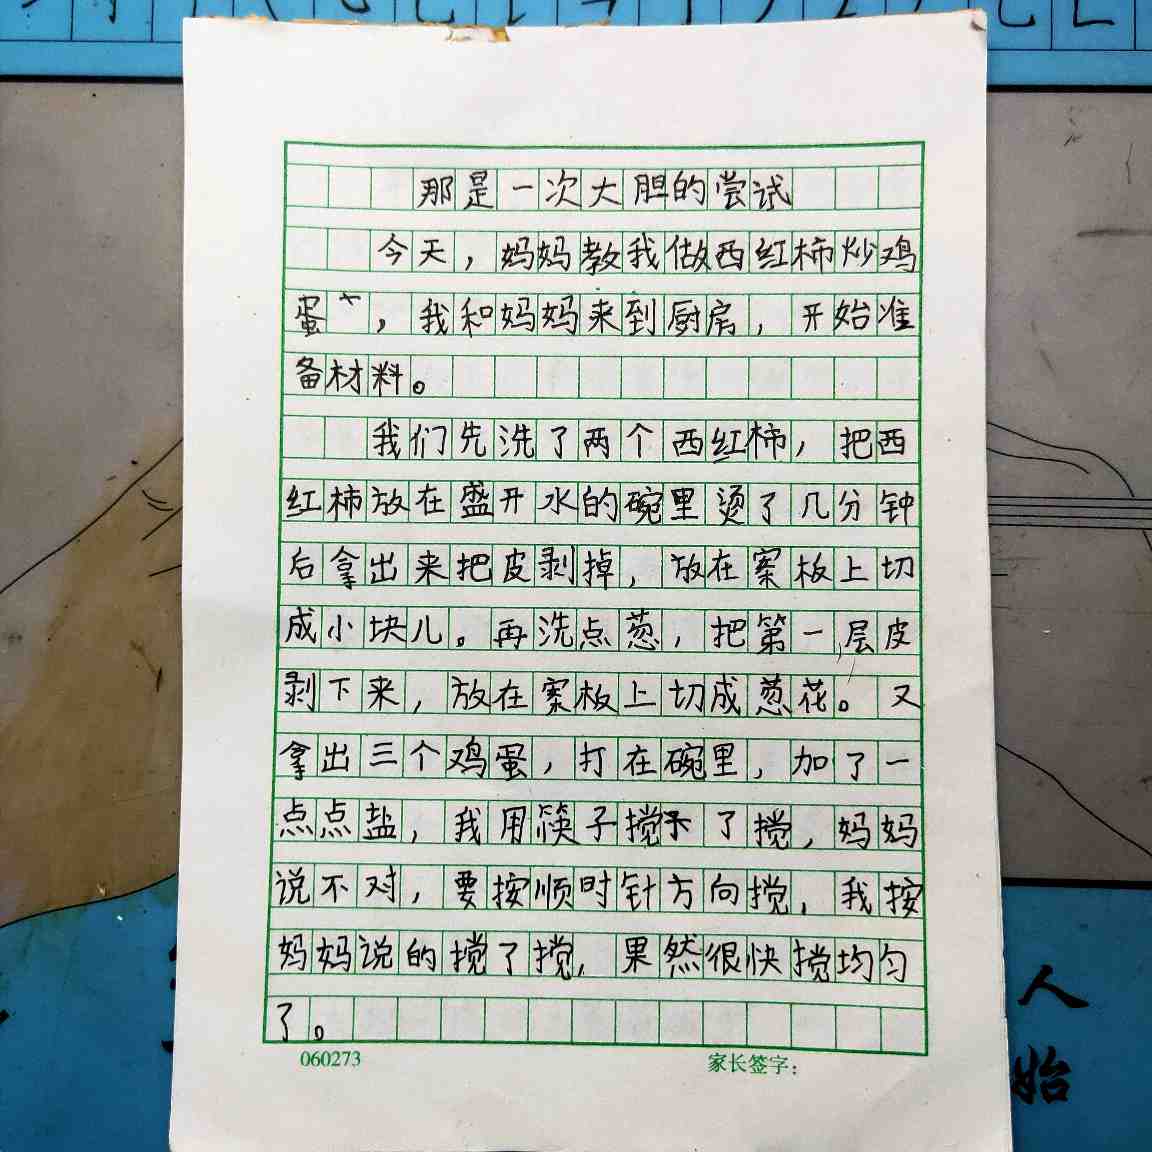 那是一次大胆的尝试
今天，妈妈教我做西红柿炒鸡
蛋，我和妈妈来到厨房，开始准
备材料。
我们先洗了两个西红柿，把西
红柿放在盛开水的碗里烫了几分钟
后拿出来把皮剥掉，放在案板上切
成小块儿。再洗点葱，把第一层皮
剥下来，放在案板上切成葱花。又
拿出三个鸡蛋，打在碗里，加了一
点点盐，我用筷子搅了搅，妈妈
说不对，要按顺时针方向搅，我按
妈妈说的搅了搅，果然很快搅均匀
了。
060273
家长签字：
人
始